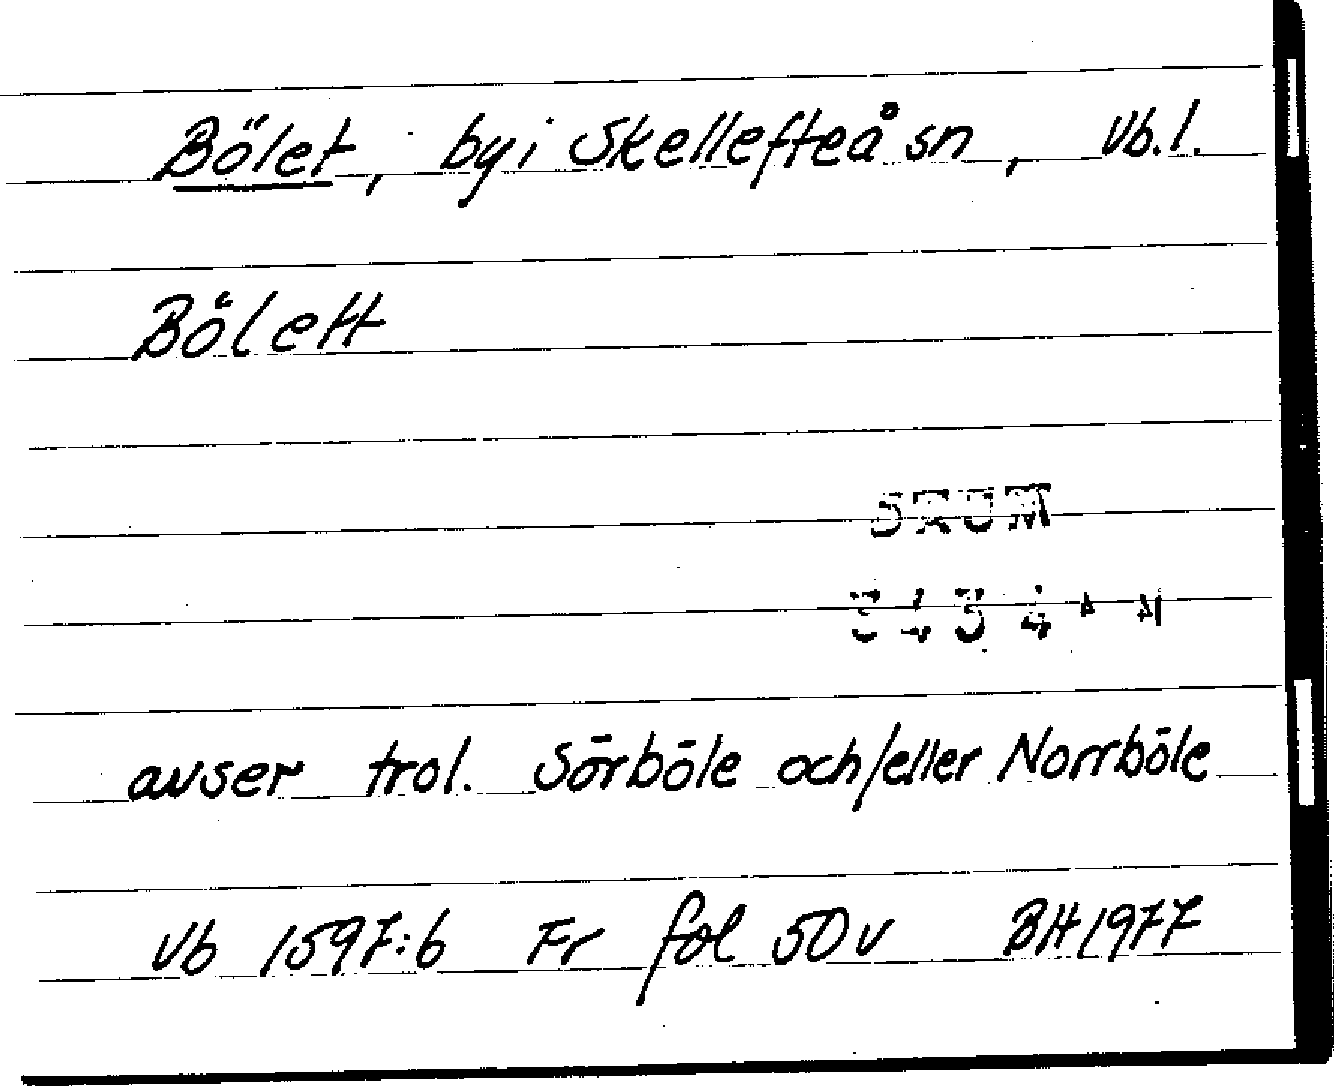 Bölet, by i Skellefteå sn, Vb.l.
Bölett
avser trol. Sörböle och/eller Norrböle
Vb 1597:6 Fr fol 50 v BH 1977